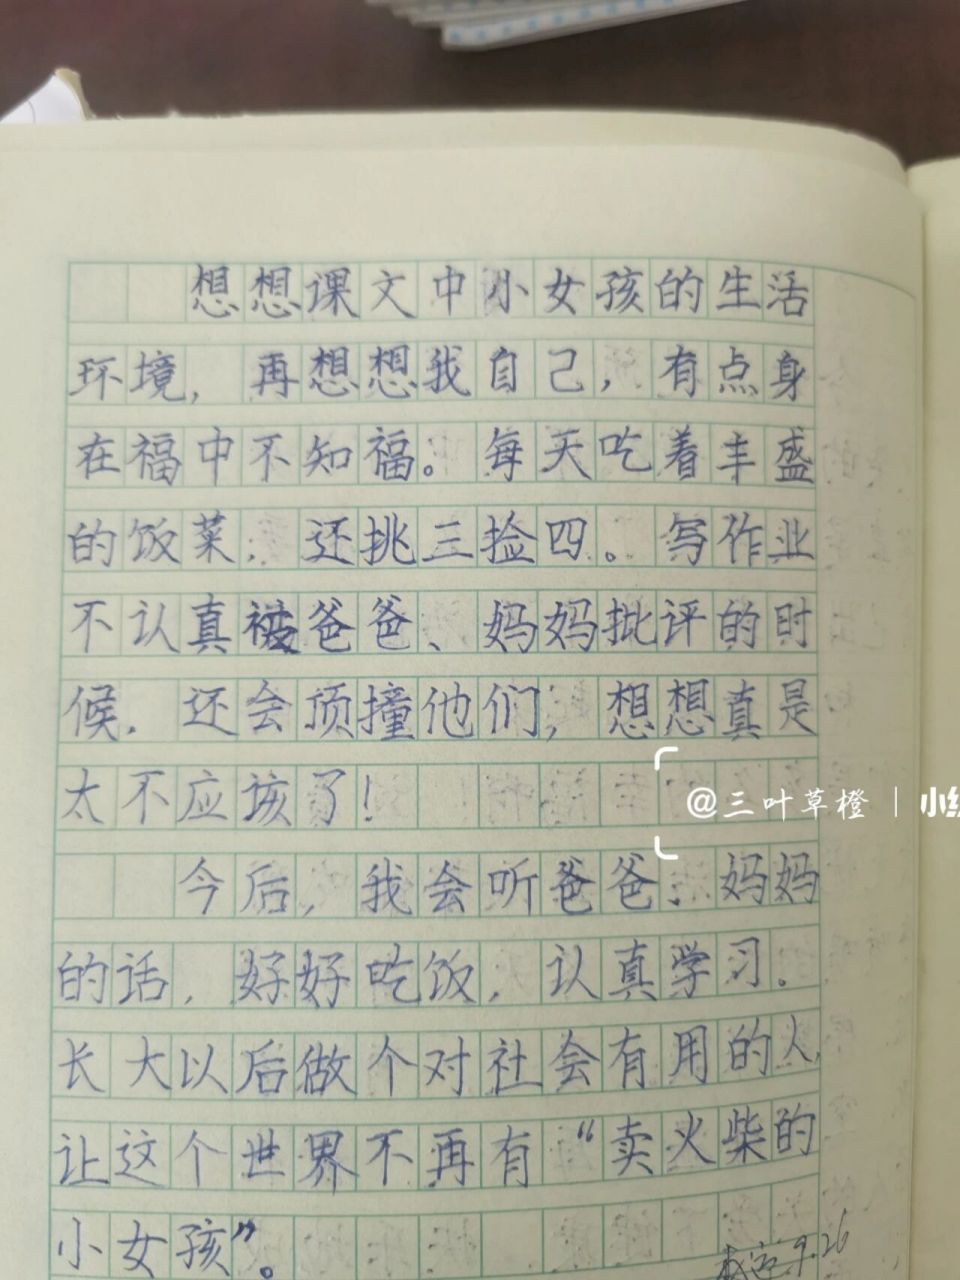 想想课文中小女孩的生活
环境，再想想我自己，有点身
在福中不知福。每天吃着丰盛
的饭菜，还挑三捡四。写作业
不认真被爸爸、妈妈批评的时
候，还会顶撞他们，想想真是
太不应该了！
@三叶草橙 | 小红
今后，我会听爸爸、妈妈
的话，好好吃饭，认真学习。
长大以后做个对社会有用的人，
让这个世界不再有“卖火柴的
小女孩”。
9.26